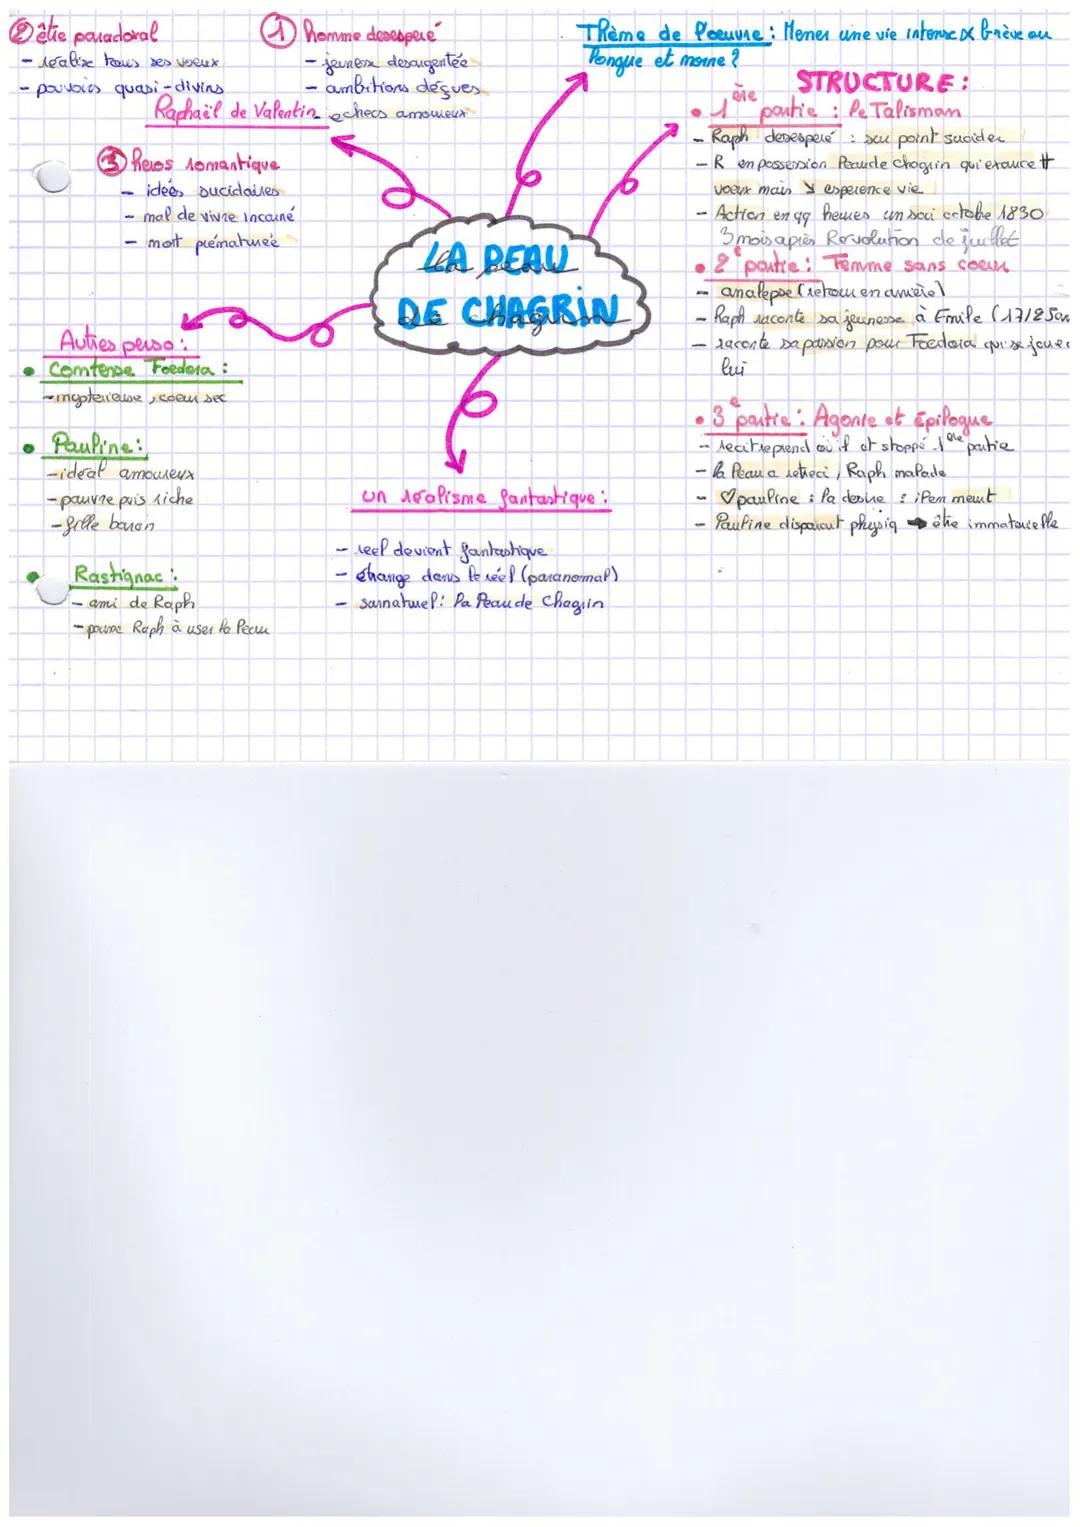 ② être paradoxal
- réalise tous ses voeux
- pouvoirs quasi-divins
① homme desesperé
- jeunesse desargentée
- ambitions déçues
- echecs amoureux
Raphaël de Valentin
③ heros romantique
- idées sucidaires
- mal de vivre incarné
- mort prématurée
Thème de l'œuvre : Mener une vie intense & brève ou
longue et morne ?
STRUCTURE :
• 1ère partie : le Talisman
- Raph desesperé : sur point suicider
- R en possession Peau de chagrin qui exauce #
voeux mais ↘ esperence vie
- Action en qq heures un soir octobre 1830
3 mois après Revolution de juillet
• 2e partie : Femme sans coeur
- analepse (retour en arrière)
- Raph raconte sa jeunesse à Emile (17/25 an
- raconte sa passion pour Foedora qui se joue
lui
• 3e partie : Agonie et épilogue
- recit reprend où il est stoppé 1ère partie
- la Peau a retreci, Raph malade
- ♡ pauline : la desire : il en meurt
- Pauline disparait physiq ➡ être immaterielle
LA PEAU
DE CHAGRIN
la peau
de chagrin
Autres perso :
• Comtesse Foedora :
- mysterieuse, coeur sec
• Pauline :
- idéal amoureux
- pauvre puis riche
- fille baron
• Rastignac :
- ami de Raph
- pousse Raph à user la Peau
un réalisme fantastique :
- reel devient fantastique
- étrange dans le réel (paranormal)
- surnaturel : la Peau de Chagrin